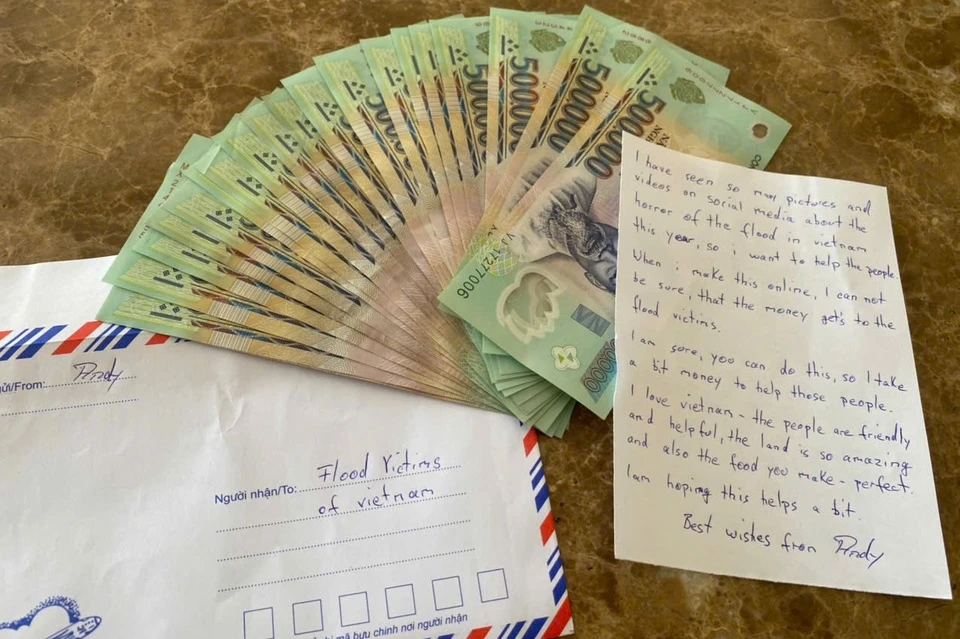 500000
500000
500000
500000
500000
VIỆT
500000
17277006
I have seen so many pictures and
videos on social media about the
horror of the flood in vietnam
this year, so i want to help the people.
When i make this online, I can not
be sure, that the money get's to the
flood victims.
I am sure, you can do this, so I take
a bit money to help those people.
I love vietnam - the people are friendly
and helpful, the land is so amazing
and also the food you make - perfect.
I am hoping this helps a bit.
Best wishes from Andy
gửi/From: Andy
Người nhận/To: Flood Victims
of vietnam
mã bưu chính nơi người nhận